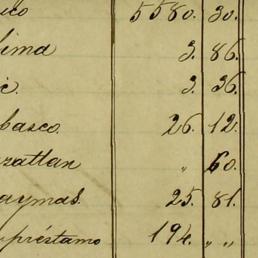 ico 5580. 30.
lima 3. 86
ic. 3. 36.
basco. 26. 12.
zatlan " 60.
aymas. 25. 81.
npréstamo 194. " "